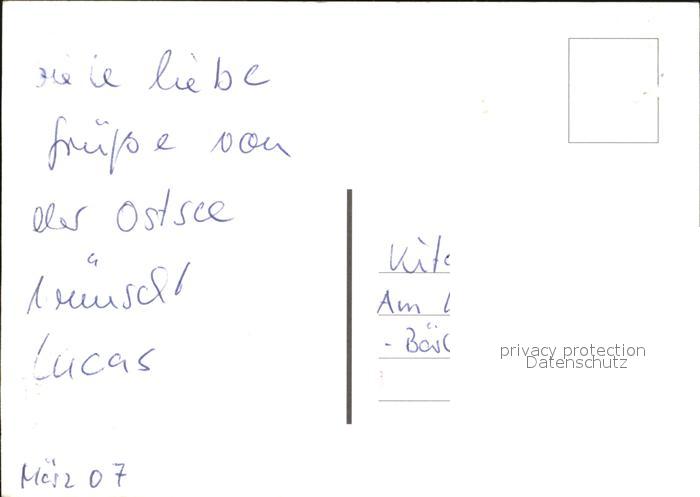 viele liebe
Grüße von
der Ostsee
wünscht
Lucas
März 07
Am
privacy protection
Datenschutz